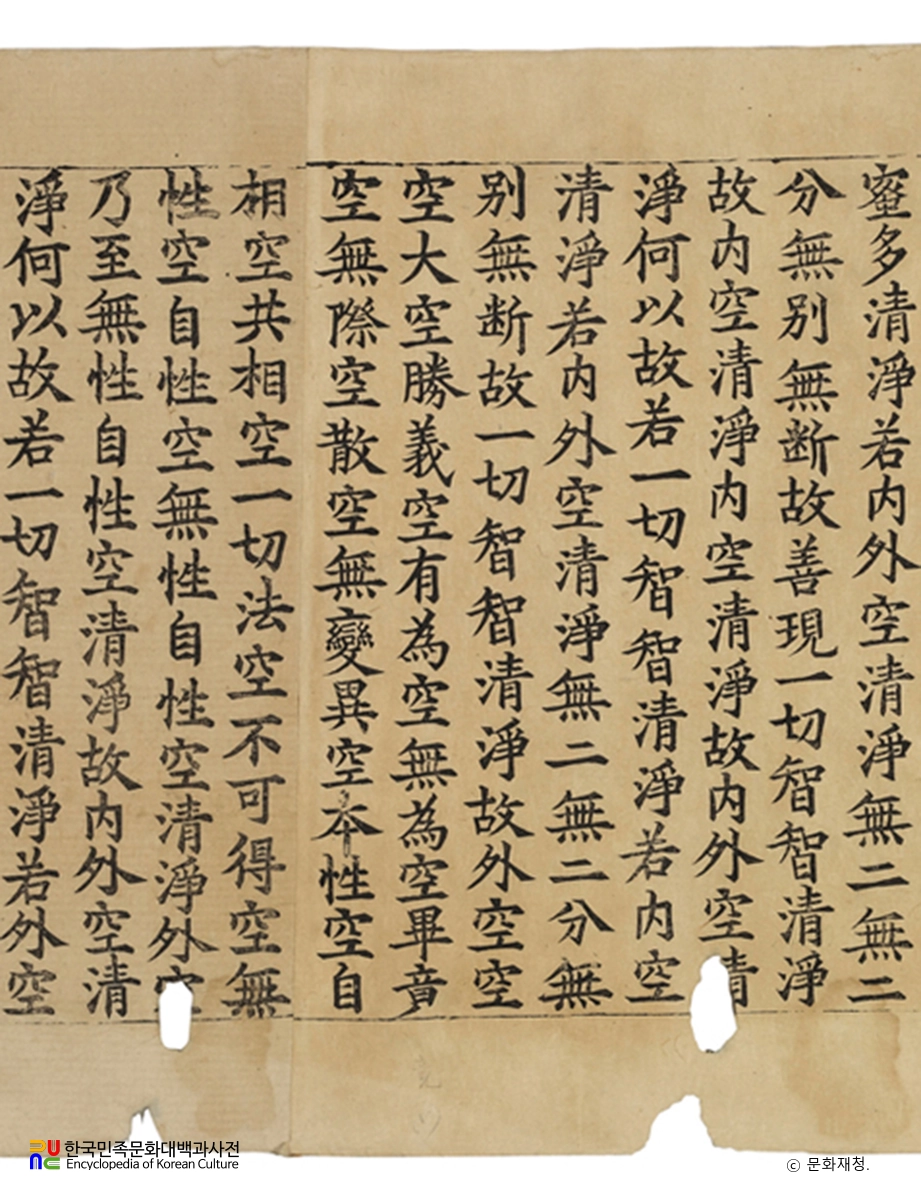 蜜多清淨若内外空清淨無二無二
分無别無断故善現一切智智清淨
故内空清淨内空清淨故内外空清
淨何以故若一切智智清淨若内空
清淨若内外空清淨無二無二分無
别無断故一切智智清淨故外空空
空大空勝義空有為空無為空畢竟
空無際空散空無變異空本性空自
相空共相空一切法空不可得空無
性空自性空無性自性空清淨外空
乃至無性自性空清淨故内外空清
淨何以故若一切智智清淨若外空
한국민족문화대백과사전
Encyclopedia of Korean Culture
© 문화재청.